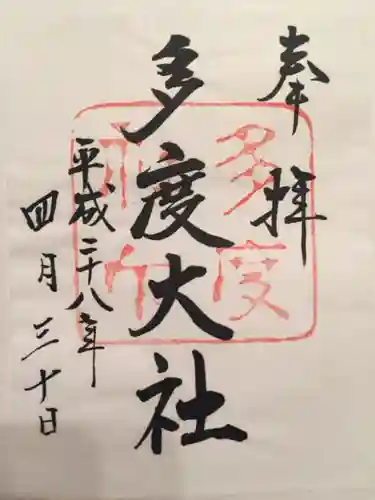 奉拝
多度大社
平成二十八年
四月三十日
多度